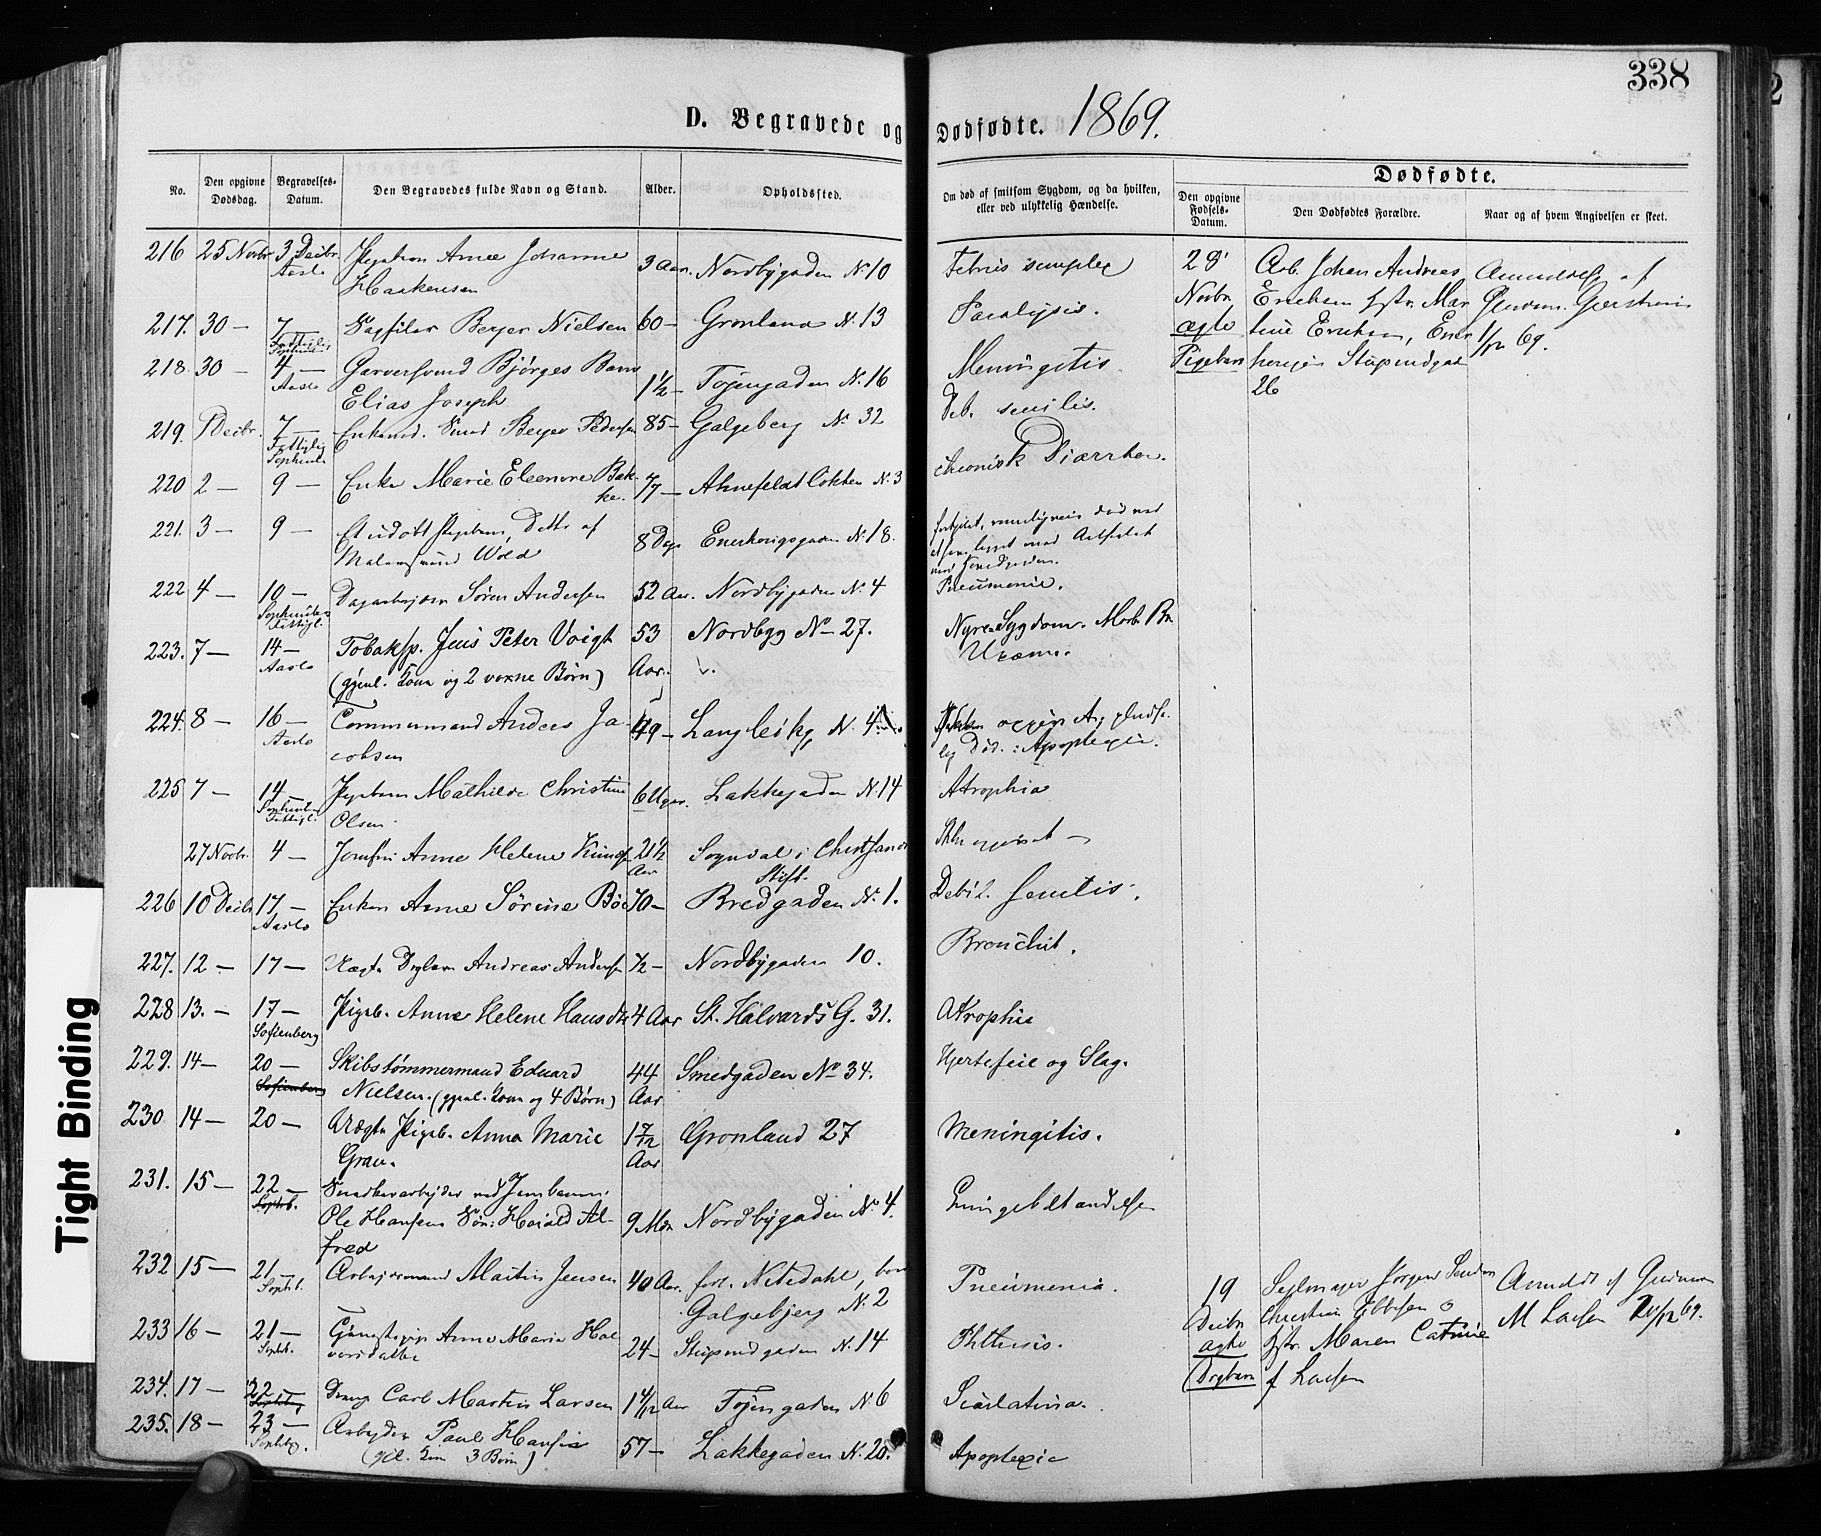 338
D. Begravede og Dødfødte. 1869.
No.
Den opgivne Dødsdag.
Begravelses-Datum.
Den Begravedes fulde Navn og Stand.
Alder.
Opholdssted.
Om død af smitsom Sygdom, og da hvilken, eller ved ulykkelig Hændelse.
Dødfødte.
Den opgivne Fødsels-Datum.
Den Dødfødtes Forældre.
Naar og af hvem Angivelsen er skeet.
216 25 Novbr 3 Decbr. Aaslo Anne Johanne Haakensen 3 Aar. Nordbygaden No 10 Febris simplex
28 Novbr ægte Pigebarn
Arb. Johan Andreas Ericksen Hstr. Mar
tine Ericksen, Ener
26
Anmeldelse af
1/12 69.
217. 30 — 7 — Berger Nielsen 60 — Grønland No. 13 Paralysis.
218 30 — 4 — Aaslo Garversvend Bjørges Barn Elias Joseph 1½ — Tøiengaden No. 16 Meningitis
219. 1 Decbr. 7 — Enkemd. Berger Pedersen 85 — Galgeberg No 32 Deb. senilis.
220 2 — 9 — Enke Marie Eleonore Bakke. 77 — Ahnefeldtløkken No. 3 chronisk Diarrhoe.
221. 3 — 9 — Et udøbt Pigebarn, Dattr af Malersvend Wold 8 Dage Enerhougsgaden No. 18.
222 4 — 10 — Dagarbejder Søren Andersen 52 Aar. Nordbygaden No. 4 Pneumonie.
223. 7 — 14 — Aaslo Tobaksp. Jens Peter Voigt (gjenl. Kone og 2 voxne Børn) 53 Aar. Nordbyg No 27. Nyre-Sygdom. Morb. Br. Uræmi.
224. 8 — 16 — Aaslo Anders Jacobsen 49 — Langleikg. No. 4 Død: Apoplexie.
225 7 — 14 — Pigebarn Mathilde Christine Olsen 6 Uger. Lakkegaden No 14 Atrophia
27 Novbr. 4 — Jomfru Anne Helene 21½ Aar Sogndal i Christsands Stift.
226 10 Decbr 17 — Aaslo Enken Anne Sørine Bøe 70 — Bredgaden No. 1. Debil. senilis.
227. 12 — 17 — Uægte Drgbarn Andreas Anders ½ — Nordbygaden 10. Bronchit.
228 13. — 17 — Sofienberg Pigeb. Anne Helene Hansdtr 4 Aar St. Halvards G. 31. Atrophie
229. 14 — 20 — Sofienberg Skibstømmermand Eduard Nielsen. (gjenl. Kone og 4 Børn) 44 Aar Smedgaden No 34. Hjertefeil og Slag.
230 14 — 20 — Uægte Pigeb. Anna Marie Grau. 1 7/12 Aar Grønland 27 Meningitis.
231. 15 — 22 — Sophb. Snedkerarbejder ved Jernbanen. Ole Hansens Søn: Harald Alfred 9 Mdr Nordbygaden No 4. Lungebetændelse
232 15 — 21 — Sophb. Arbejdsmand Martin Jensen 40 Aar. fra Nitedahl, bor Galgebjerg No. 2 Pneumonia.
19 Decbr ægte Drgbarn
Seglmager Jørgen
Christian Ebbesen &
Hstr. Maren Catrine
f Larsen
Anmeldt af
M Larsen 20/12 69.
233 16 — 21 — Sophb. Anne Maria Hal 24 — Stupendgaden No. 14 Phthisis.
234. 17 — 22 — Drengb. Carl Martin Larsen 1 4/12 Aar Tøjengaden No 6 Scarlatina.
235. 18 — 23 — Sophbg. Arbejder Paul Hansen (gjl. Kone 3 Børn) 57 — Lakkegaden No. 20. Apoplexie
Tight Binding